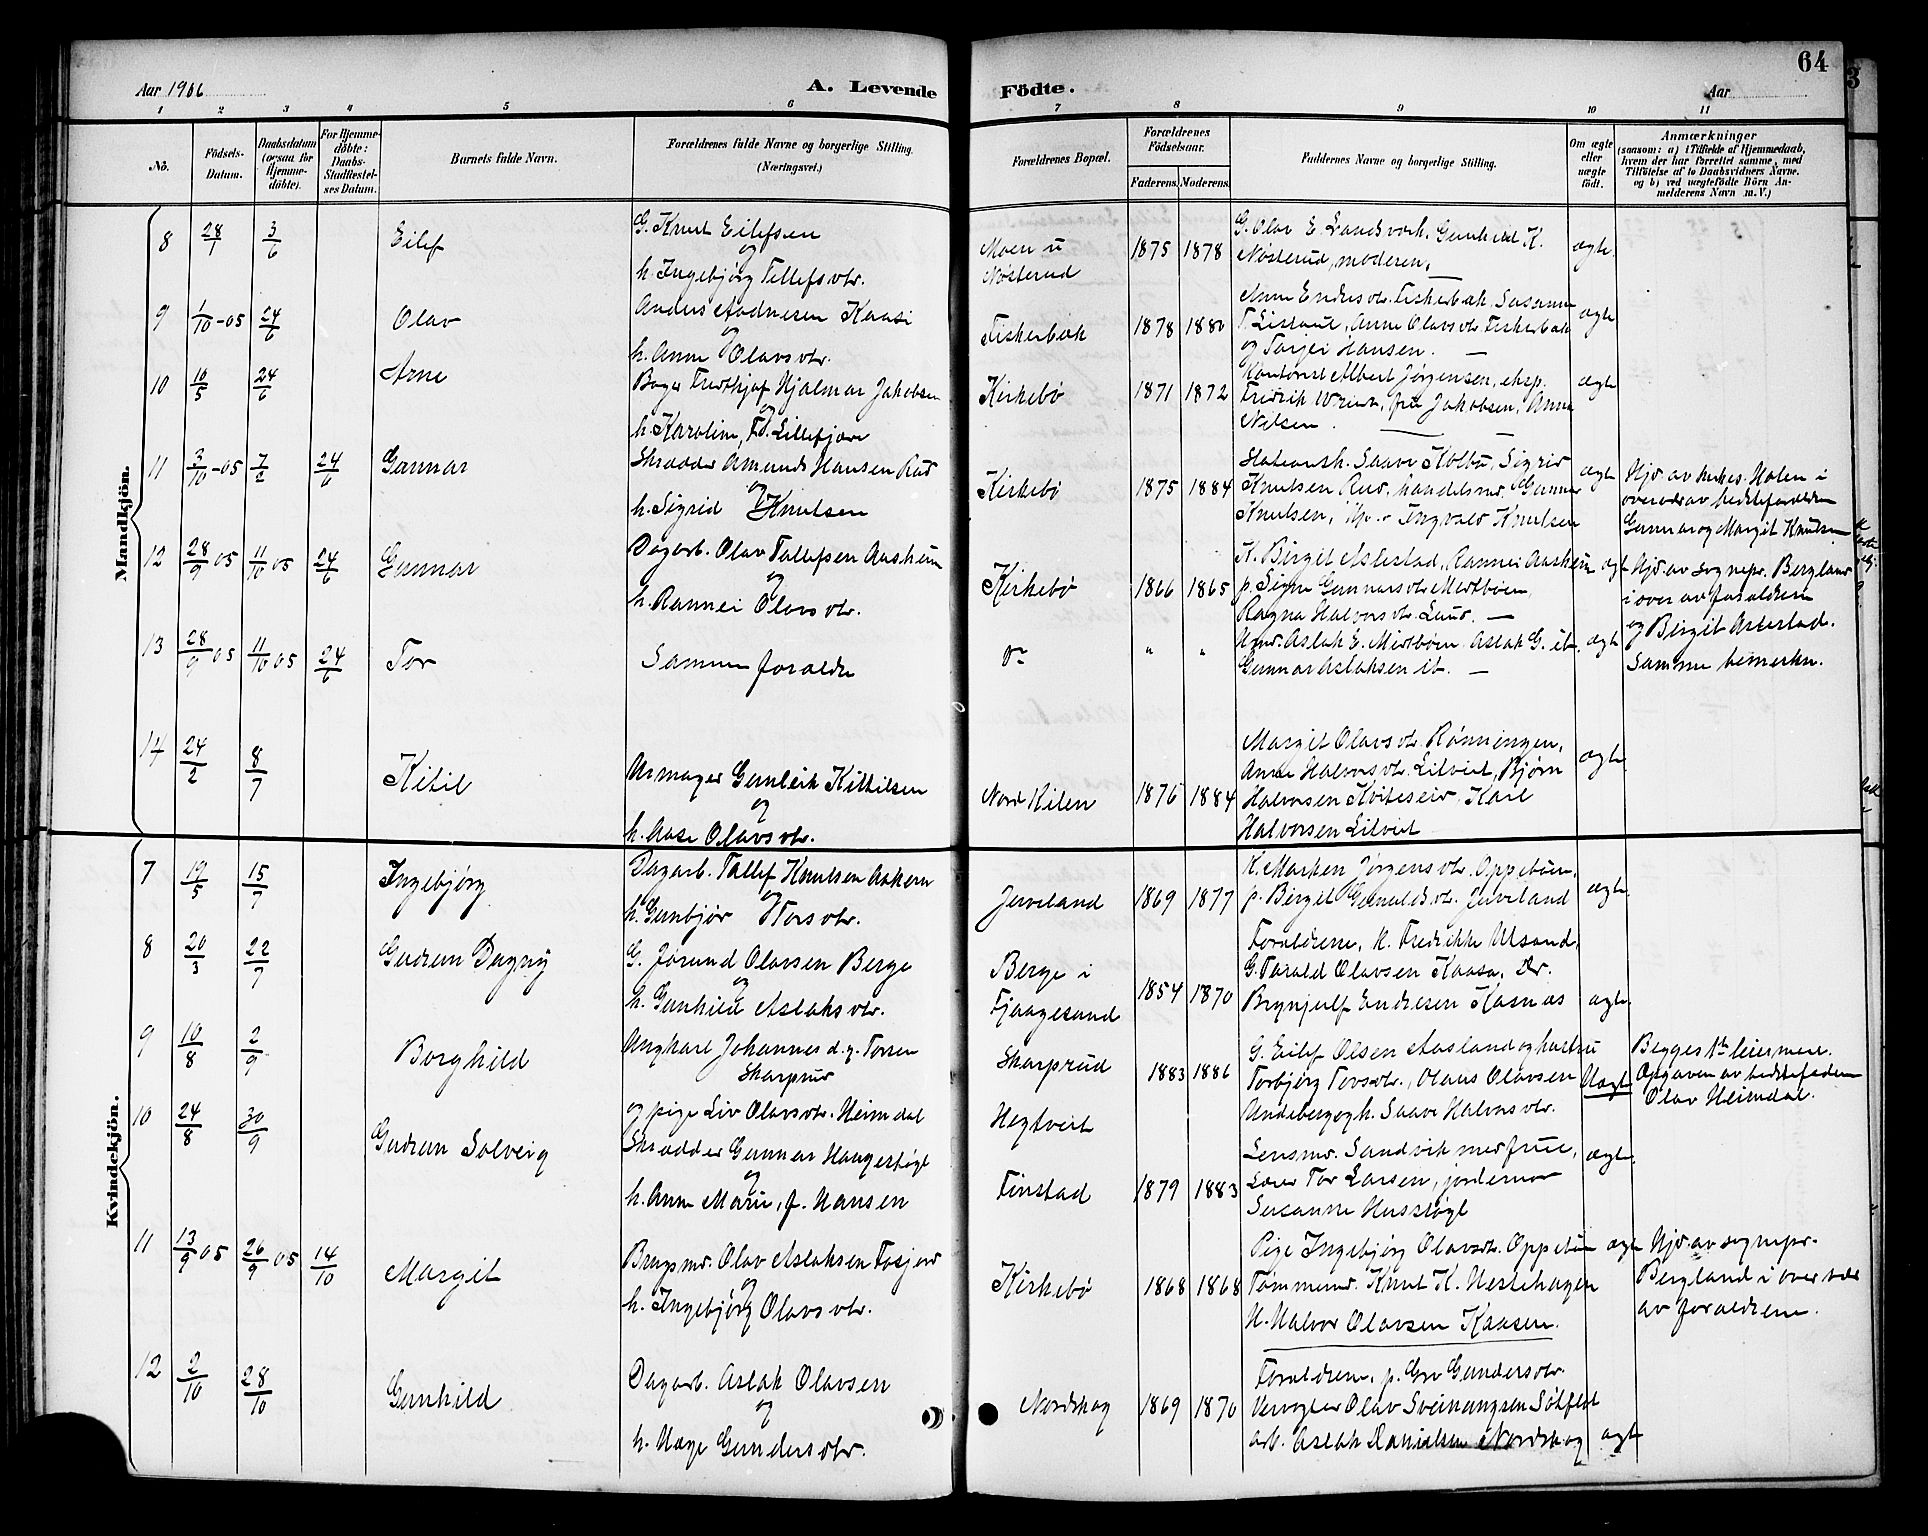 64
Aar 1906
A. Levende Födte.
Aar
1 2 3 4 5 6 7 8 9 10 11
No.
Födsels-Datum.
Daabsdatum (ogsaa for Hjemmedöbte).
For Hjemmedöbte: Daabs-Stadfæstelses Datum.
Barnets fulde Navn.
Forældrenes fulde Navne og borgerlige Stilling. (Næringsvei.)
Forældrenes Bopæl.
Forældrenes Födselsaar.
Faderens. Moderens.
Faddernes Navne og borgerlige Stilling.
Om ægte eller uægte födt.
Anmærkninger
(saasom: a) i Tilfælde af Hjemmedaab, hvem der har forrettet samme, med Tilföielse af to Daabsvidners Navne. og b) ved uægtefödte Börn Anmelderens Navn m. V.)
Mandkjön.
8 28/1 3/6 Eilef
G. Knut Eilefsen
og
h. Ingebjørg Tellefsdtr.
Moen u
Nøsterud
1875 1878
G. Olav E. Landsverk, Gunhild K.
Nøsterud, moderen.
ægte.
9 1/10-05 24/6 Olav
Anders Aadnesen Kaasi
og
h. Anne Olavsdtr.
Fiskerbæk
1878 1880
Anne Endresdtr. Fiskerbæk, Susanne
T. Listaul, Anne Olavsdtr. Fiskerbæk
og Tarjei Hansen.
ægte
10 10/5 24/6 Arne
Bager Fredthjof Hjalmar Jakobsen
og
h. Karoline, f. Lillefjære
Kirkebø
1871 1872
Kontorist Albert Jørgensen, eksp.
Fredrik, fru Jakobsen, Anna
Nilsen.
ægte
11 3/10-05 7/2 24/6 Gunnar
Skrædder Amund Hansen Rud
og
h. Sigrid Knutsen
Kirkebø
1875 1884
Saave Kolbu, Sigrid
Knutsen Rud, handelsmd. Gunnar
Knutsen, Ingvald Knutsen
ægte
Hjd. av kirkes. Holen i
overvær av bedsteforældrene
Gunnar og Margit Knutsen
12 28/9 05 11/10 05 24/6 Gunnar
Dagarb. Olav Tallefsen Aasheim
og
h. Rannei Olavsdtr.
Kirkebø
1866 1865
K. Birgit Aslestad, Rannei Aasheim
p. Signe Gunnarsdtr. Midtbøen,
Ragna Halvorsdtr. Lund.
ægt
Hjd. av sognepr. Bergland
i over av forældrene
og Birgit Aslestad.
13 28/9 05 11/10 05 24/6 Tor
Samme forældre
Do
" "
Aslak E. Midtbøen. Aslak G. ib.
Gunnar Aslaksen ib.
ægte
Samme bemerkn.
14 24/2 8/7 Kitil
Urmager Gunleik Kittilsen
og
h. Aase Olavsdtr.
Nord Kilen
1876 1884
Margit Olavsdtr. Rønningen,
Anne Halvorsdtr. Litveit, Bjørn
Halvorsen Kviteseid, Karl
Halvorsen Litveit
ægte.
Kvindekjön.
7 19/5 15/7 Ingebjørg
Dagarb. Tallef Knutsen Askern
og
h. Gunbjør Torsdtr.
Juveland
1869 1877
K. Marken Jørgensdtr. Oppebøen,
p. Birgit Gunuldsdtr. Juveland
ægte.
8 20/3 22/7 Gudrun Dagny
G. Jørund Olavsen Berge
og
h. Gunhild Aslaksdtr.
Berge i
Fjaagesund
1854 1870
Forældrene, K. Fredrikke Ulsand,
G. Tarald Olavsen Kaasa, Dr.
Brynjulf Endresen Kasnæs
ægte.
9 10/8 2/9 Borghild
Ungkarl Johannes d. y. Torsen
Skarprud
og pige Liv Olavsdtr. Heimdal
Skarprud
Hegtveit
1883 1886
G. Eilef Olsen Aasland og hustru
Torbjørg Tovsdtr., Olaus Olavsen
Undeberg og h. Saave Halvorsdtr.
Uægt
Begges 1ste leiermaal.
Opgaven av bedstefaderen
Olav Heimdal.
10 24/8 30/9 Gudrun Solveig
Skrædder Gunnar Haugestøgt
og
h. Anne Marie, f. Hansen
Finstad
1879 1883
Lensmd. Sandvik med frue,
Lærer Tor Larsen, jordemor
Susanne Husstøgt
ægte.
11 13/9 05 26/9 05 14/10 Margit
Brugsmd. Olav Aslaksen Fosjord
og
h. Ingebjørg Olavsdtr.
Kirkebø
1868 1868
Pige Ingebjørg Olavsdtr. Oppebøen
Tømmermd. Knut K. Nestehagen
U. Halvor Olavsen Kaasen.
ægte
Hjd. av sognepr.
Bergland i overvær
av forældrene.
12 2/10 28/10 Gunhild
Dagarb. Aslak Olavsen
og
h. Hæge Gundersdtr.
Nordskog
1869 1870
Forældrene, p. Gro Gundersdtr.
Veivogter Olav Sveinungsen Søtfest
arb. Aslak Danielsen Nordskog
ægt